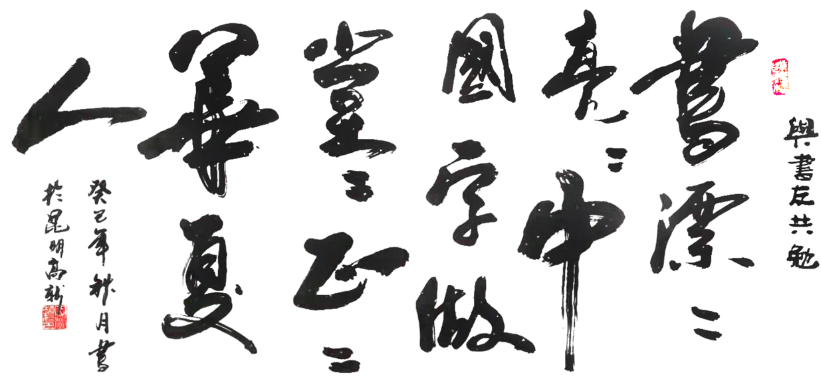 與書友共勉
書漂〻
亮〻中
國字做
堂〻正〻
華夏
人
癸巳年秋月書
於昆明高新